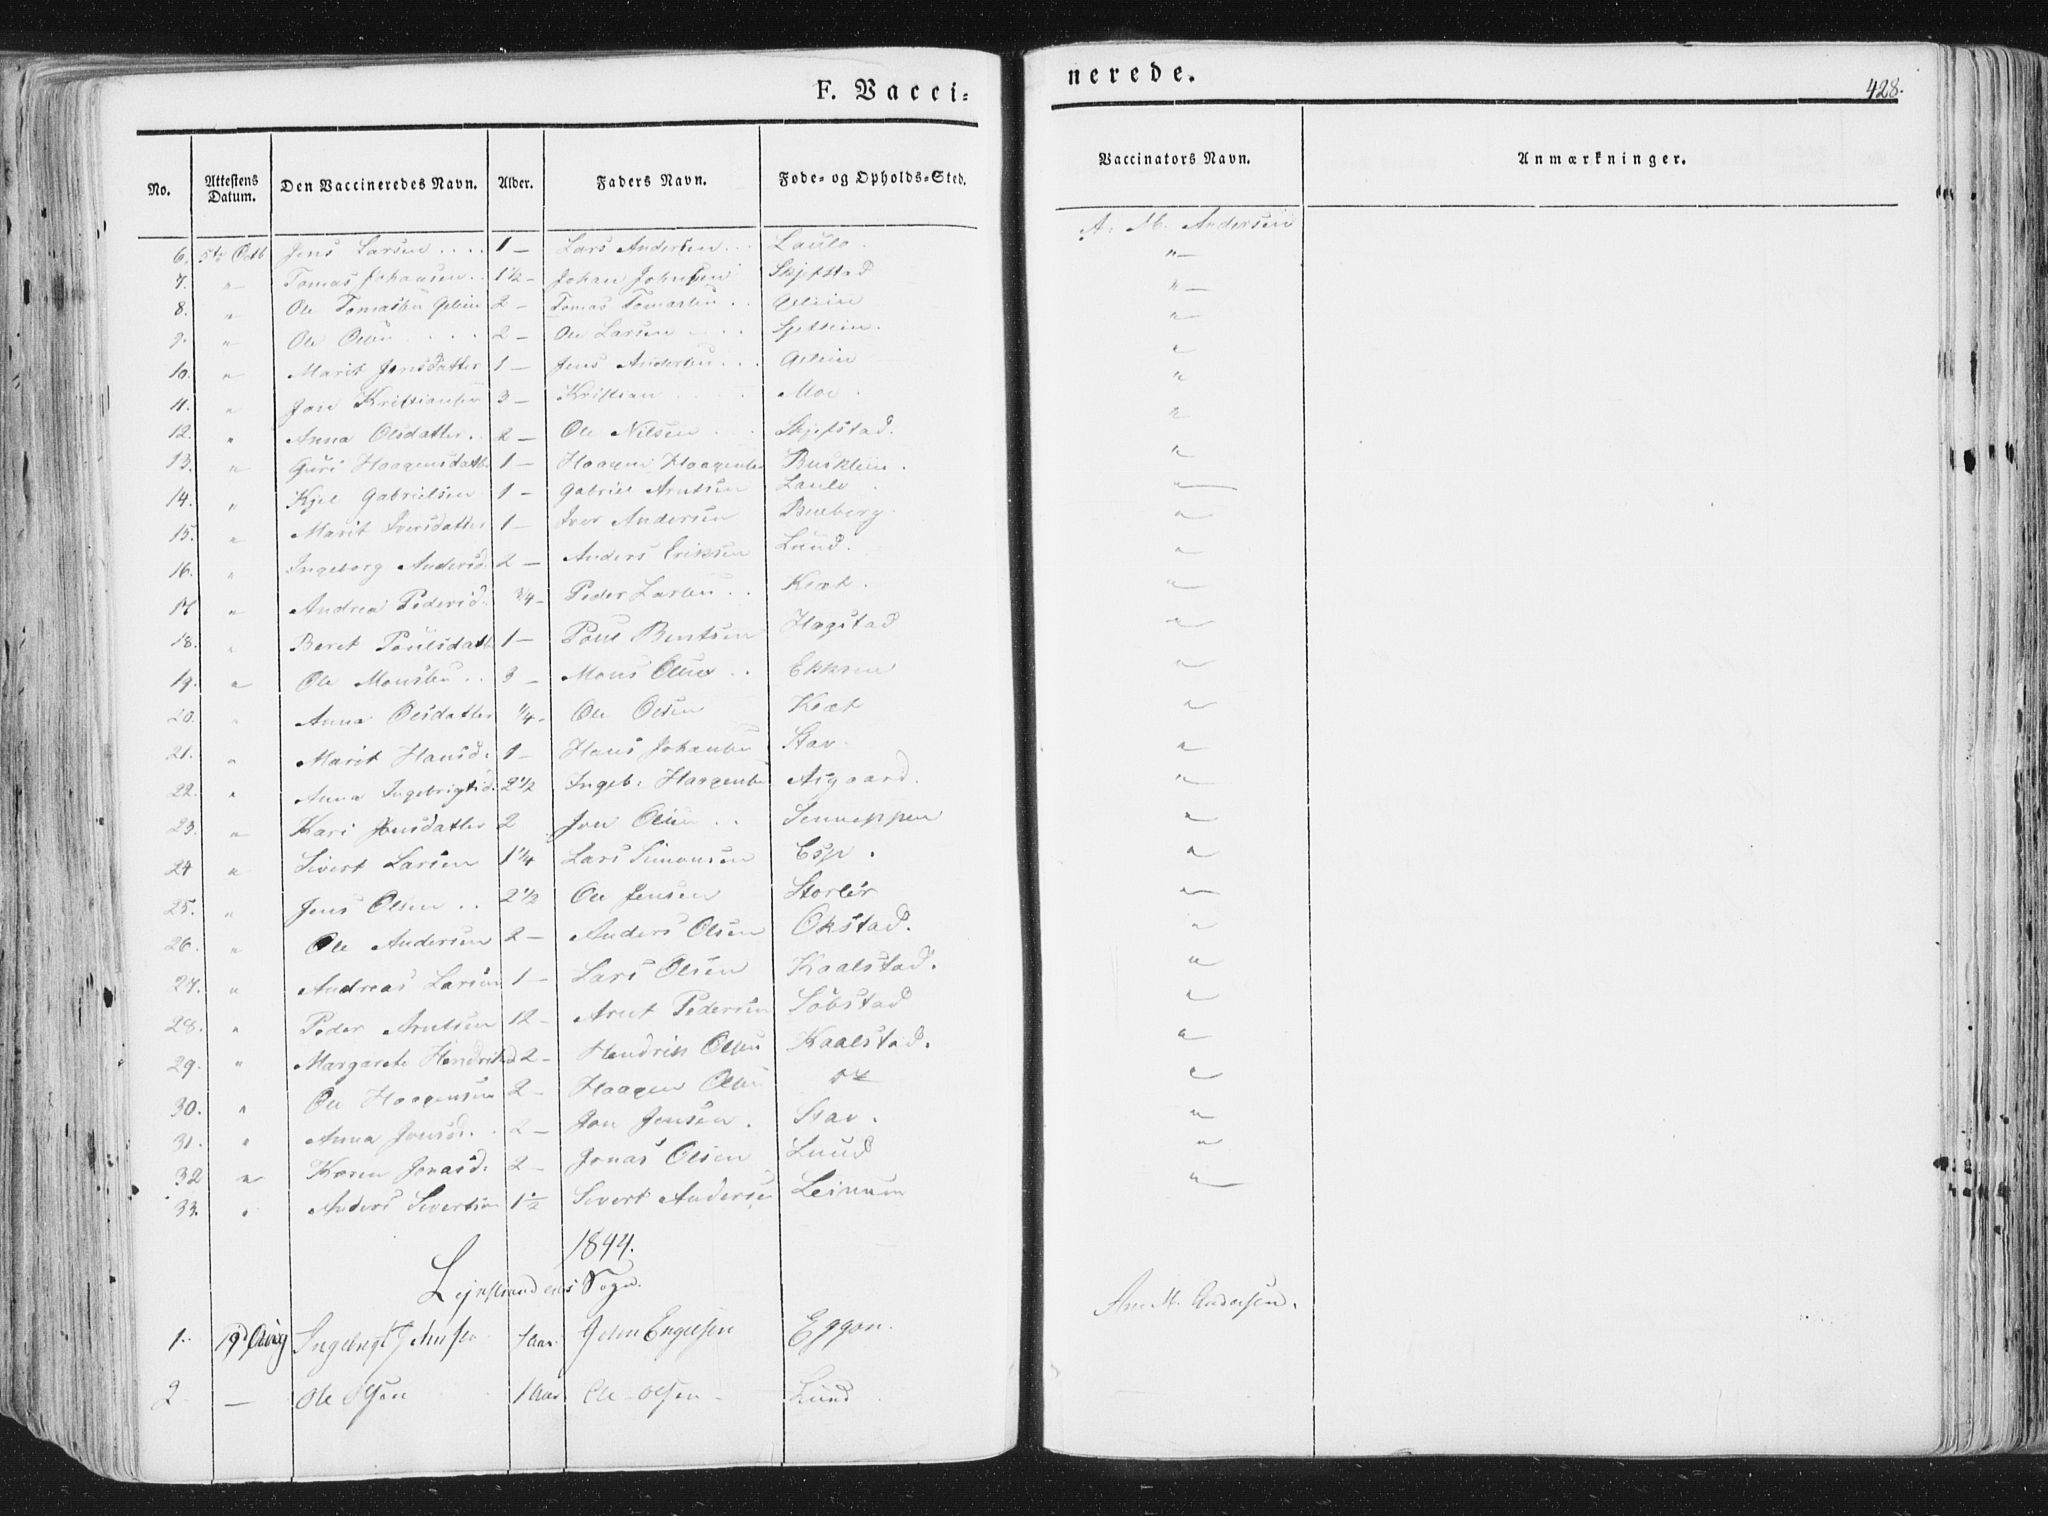 F. Vacci=
nerede.
428.
No. Attestens Datum. Den Vaccineredes Navn. Alder. Faders Navn. Føde= og Opholds=Sted. Vaccinators Navn. Anmærkninger.
6. 5te Octb Jens Larsen .... 1 — Lars Andersen ... Laulo. A. M. Andersen
7. " Tomas Johansen .. 1½ — Johan Johnsen Skjefstad "
8. " Ole Tomassen 2 — Tomas Tomassen .. "
9. " Ole Olsen .... 2 — Ole Larsen .... "
10. " Marit Jensdatter 1 — Jens Andersen ... "
11. " Jon Kristiansen 3 — Kristian .... Moe. "
12. " Anna Olsdatter .. 2 — Ole Nilsen .. Skjefstad. "
13. " Guri Haagensdatter 1 — Haagen Haagensen Busklein. "
14. " Kjel Gabrielsen 1 — Gabriel Arntsen Laulo. "
15. " Marit Iversdatter 1 — Iver Andersen "
16. " Ingeborg Andersd. 2 — Anders Eriksen Lund. "
17. " Andrea Pedersd. ¾ — Peder Larsen .. Kræt. "
18. " Beret Poulsdatter 1 — Poul Bentsen Hagstad "
19. " Ole Monsen .. 3 — Mons Olsen .. "
20. " Anna Olsdatter ¼ — Ole Olsen Kræt "
21. " Marit Hansd. 1 — Hans Johansen Stav. "
22. " Anna Ingebrigtsd. 2½ Ingeb. Haagensen Asgaard. "
23. " Kari Jonsdatter 2 Jon Olsen .. Sennoppen "
24 " Sivert Larsen 1¼ Lars Simonsen Esp. "
25. " Jens Olsen .. 2½ Ole Jensen Storler "
26. " Ole Andersen 2 — Anders Olsen Okstad. "
27. " Andreas Larsen 1 — Lars Olsen Kaalstad. "
28. " Peder Arntsen 12 — Arnt Pedersen Søbstad "
29. " Margarete Hendriksd 2 — Hendrik Olsen Kaalstad. "
30. " Ole Haagensen 2 — Haagen Olsen "
31. " Anna Jonsd. . 2 — Jon Jensen. Stav. "
32 " Karen Jonasd. 2 — Jonas Olsen Lund "
33. " Anders Sivertsen 1½ Sivert Andersen Leinum "
1844.
Lejnstrandens Sogn.
1. 19d Aug Ingebrigt Johnsen 1 Aar. John Engelsen Eggan. Ane M. Andersen.
2 — Ole Olsen 1 Aar Ole Olsen Lund.